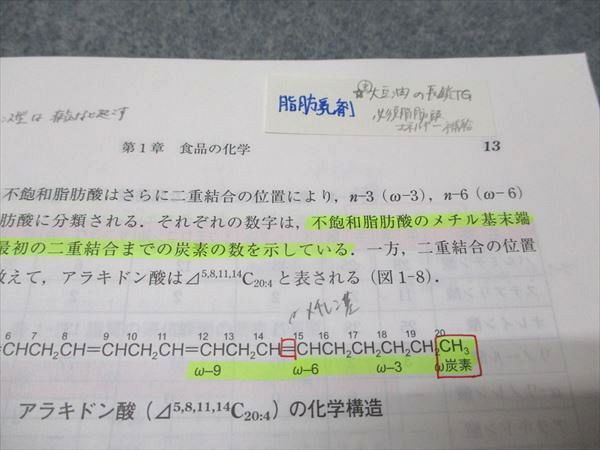 脂肪乳剤
大豆油の長鎖TG
必須脂肪酸
エネルギー補給
第1章 食品の化学
13
不飽和脂肪酸はさらに二重結合の位置により，n-3（ω-3），n-6（ω-6）
肪酸に分類される．それぞれの数字は，不飽和脂肪酸のメチル基末端
最初の二重結合までの炭素の数を示している．一方，二重結合の位置
数えて，アラキドン酸は⊿5,8,11,14C20:4と表される（図1-8）．
メチレン基
6 7 8 9 10 11 12 13 14 15 16 17 18 19 20
CHCH2CH=CHCH2CH=CHCH2CH=CHCH2CH2CH2CH2CH3
ω-9 ω-6 ω-3 ω炭素
アラキドン酸（⊿5,8,11,14C20:4）の化学構造